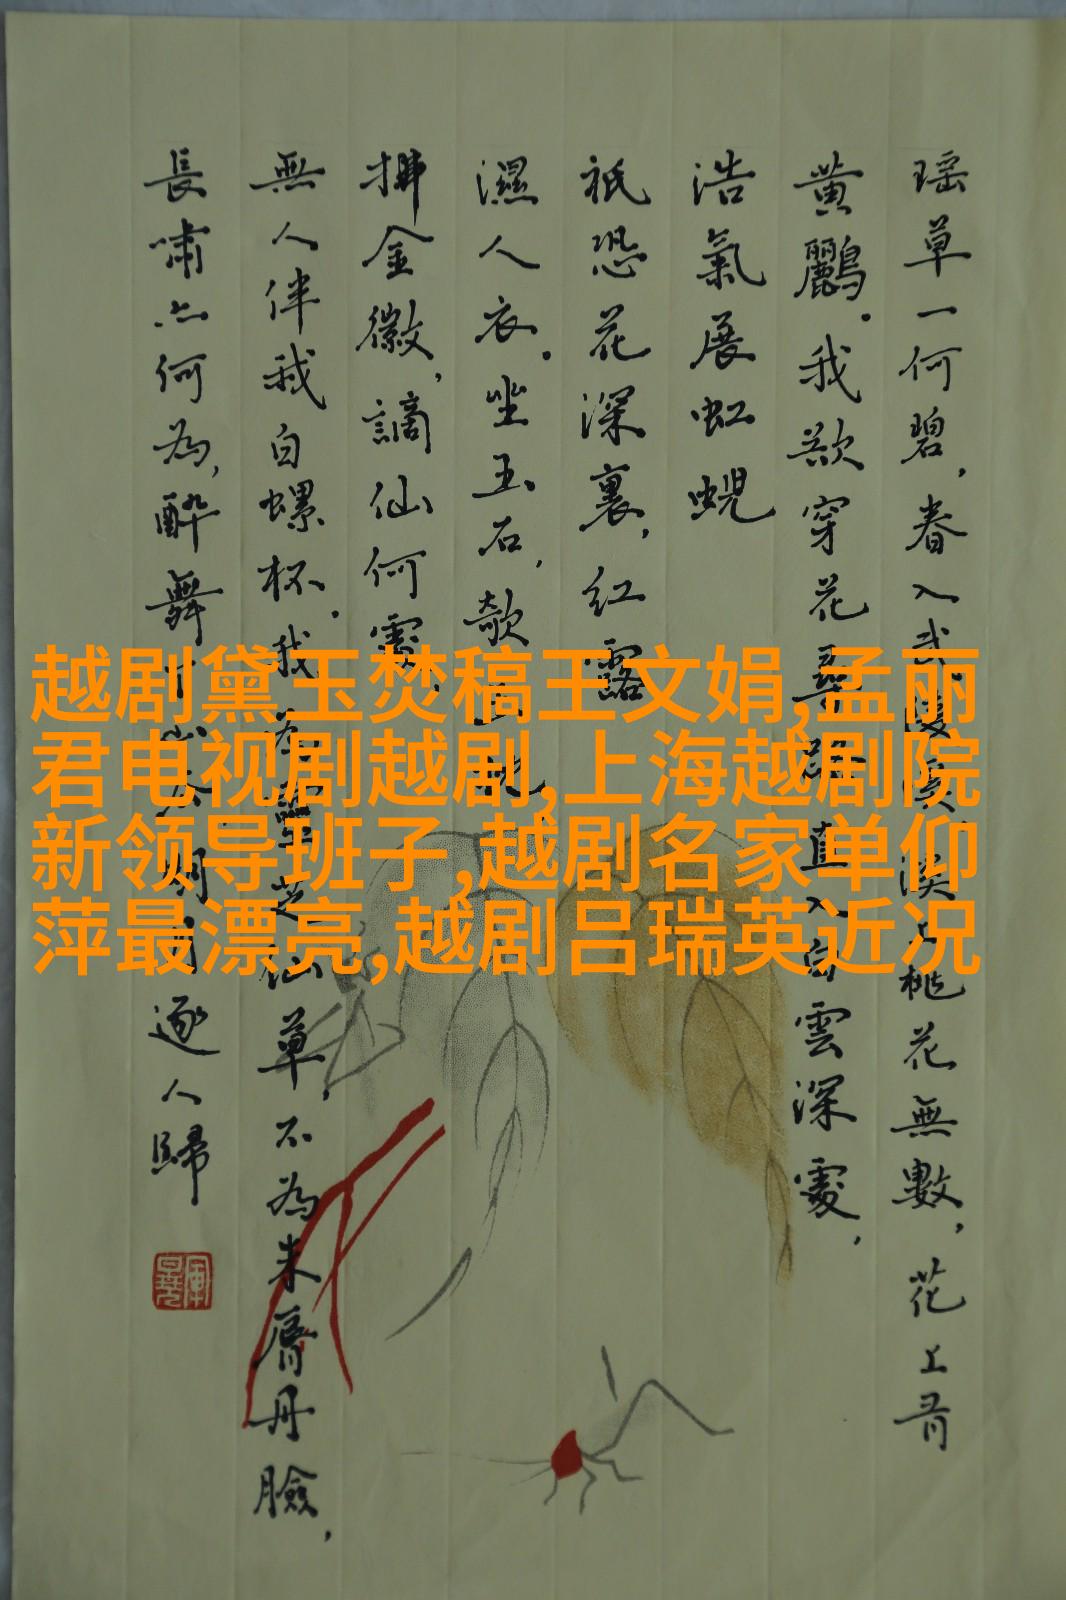 瑶草一何碧，春入武陵溪。溪上桃花無數，花上有
黄鸝。我欲穿花尋路，直入白雲深處，
浩氣展虹蜺
祇恐花深裏，红露
濕人衣。坐玉石，欹玉枕，
拂金徽，謫仙何處，
無人伴我白螺杯。我為靈芝仙草，不為朱脣丹臉，
長嘯亦何為，醉舞下山去，明月逐人歸
越剧黛玉焚稿王文娟,孟丽
君电视剧越剧,上海越剧院
新领导班子,越剧名家单仰
萍最漂亮,越剧吕瑞英近况